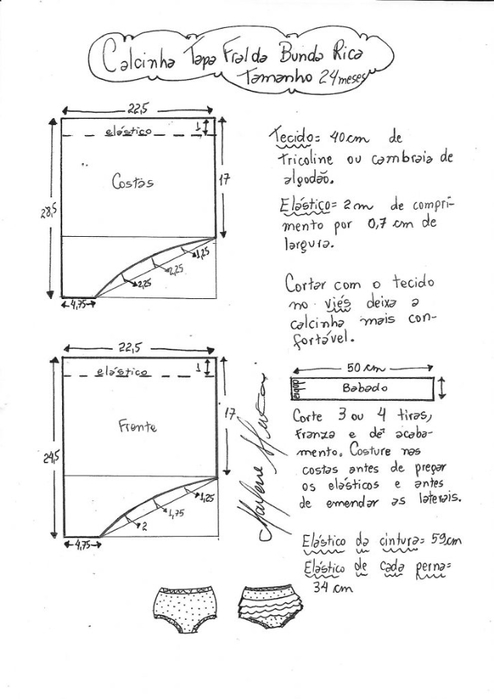 Calcinha Tapa Fralda Bunda Rica
Tamanho 24 meses
22,5
elástico
1
Costas
17
28,5
1,25
2,25
2,25
4,75
Tecido= 40cm de
tricoline ou cambraia de
algodão.
Elástico= 2m de compri-
mento por 0,7 cm de
largura.
Cortar com o tecido
no viés deixa a
calcinha mais con-
fortável.
22,5
elástico
1
Frente
17
24,5
1,25
1,75
2
4,75
50 cm
Babado
Corte 3 ou 4 tiras,
franza e dê acaba-
mento. Costure nas
costas antes de pregar
os elásticos e antes
de emendar as laterais.
Elástico da cintura= 59cm
Elástico de cada perna=
34 cm